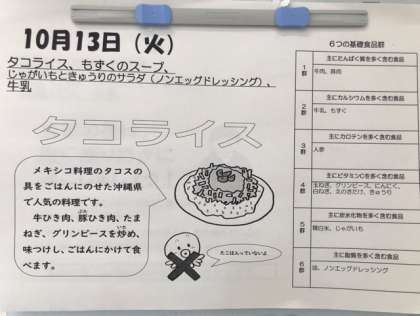 10月13日（火）
タコライス、もずくのスープ、
じゃがいもときゅうりのサラダ（ノンエッグドレッシング）、
牛乳
タコライス
メキシコ料理のタコスの
具をごはんにのせた沖縄県
で人気の料理です。
牛ひき肉、豚ひき肉、たま
ぶた
ねぎ、グリンピースを炒め、
いた
味つけし、ごはんにかけて食
べます。
たこは入っていないよ
6つの基礎食品群
主にたんぱく質を多く含む食品
1群
牛肉、豚肉
主にカルシウムを多く含む食品
2群
牛乳、もずく
主にカロテンを多く含む食品
3群
人参
主にビタミンCを多く含む食品
4群
玉ねぎ、グリンピース、にんにく、
白ねぎ、えのきだけ、きゅうり
主に炭水化物を多く含む食品
5群
精白米、じゃがいも
主に脂質を多く含む食品
6群
油、ノンエッグドレッシング